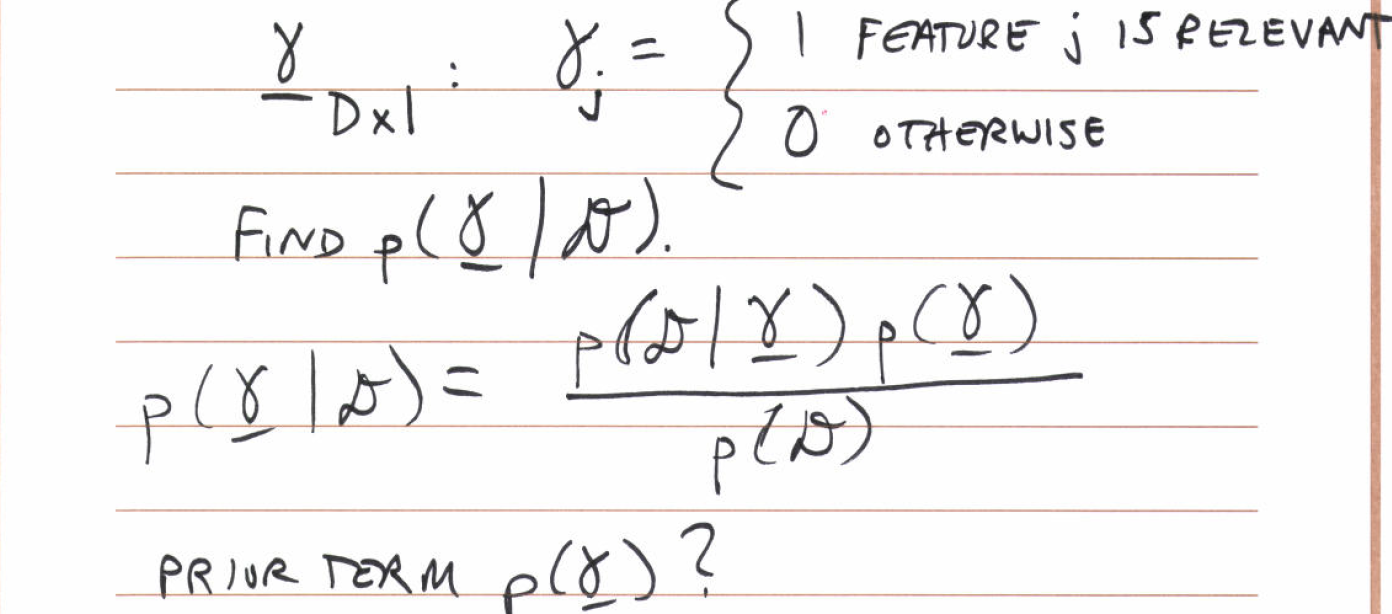 γ D×1 : γj = { 1 FEATURE j IS RELEVANT
0 OTHERWISE
FIND p(γ | 𝒟).
p(γ | 𝒟) = p(𝒟 | γ) p(γ) / p(𝒟)
PRIOR TERM p(γ) ?